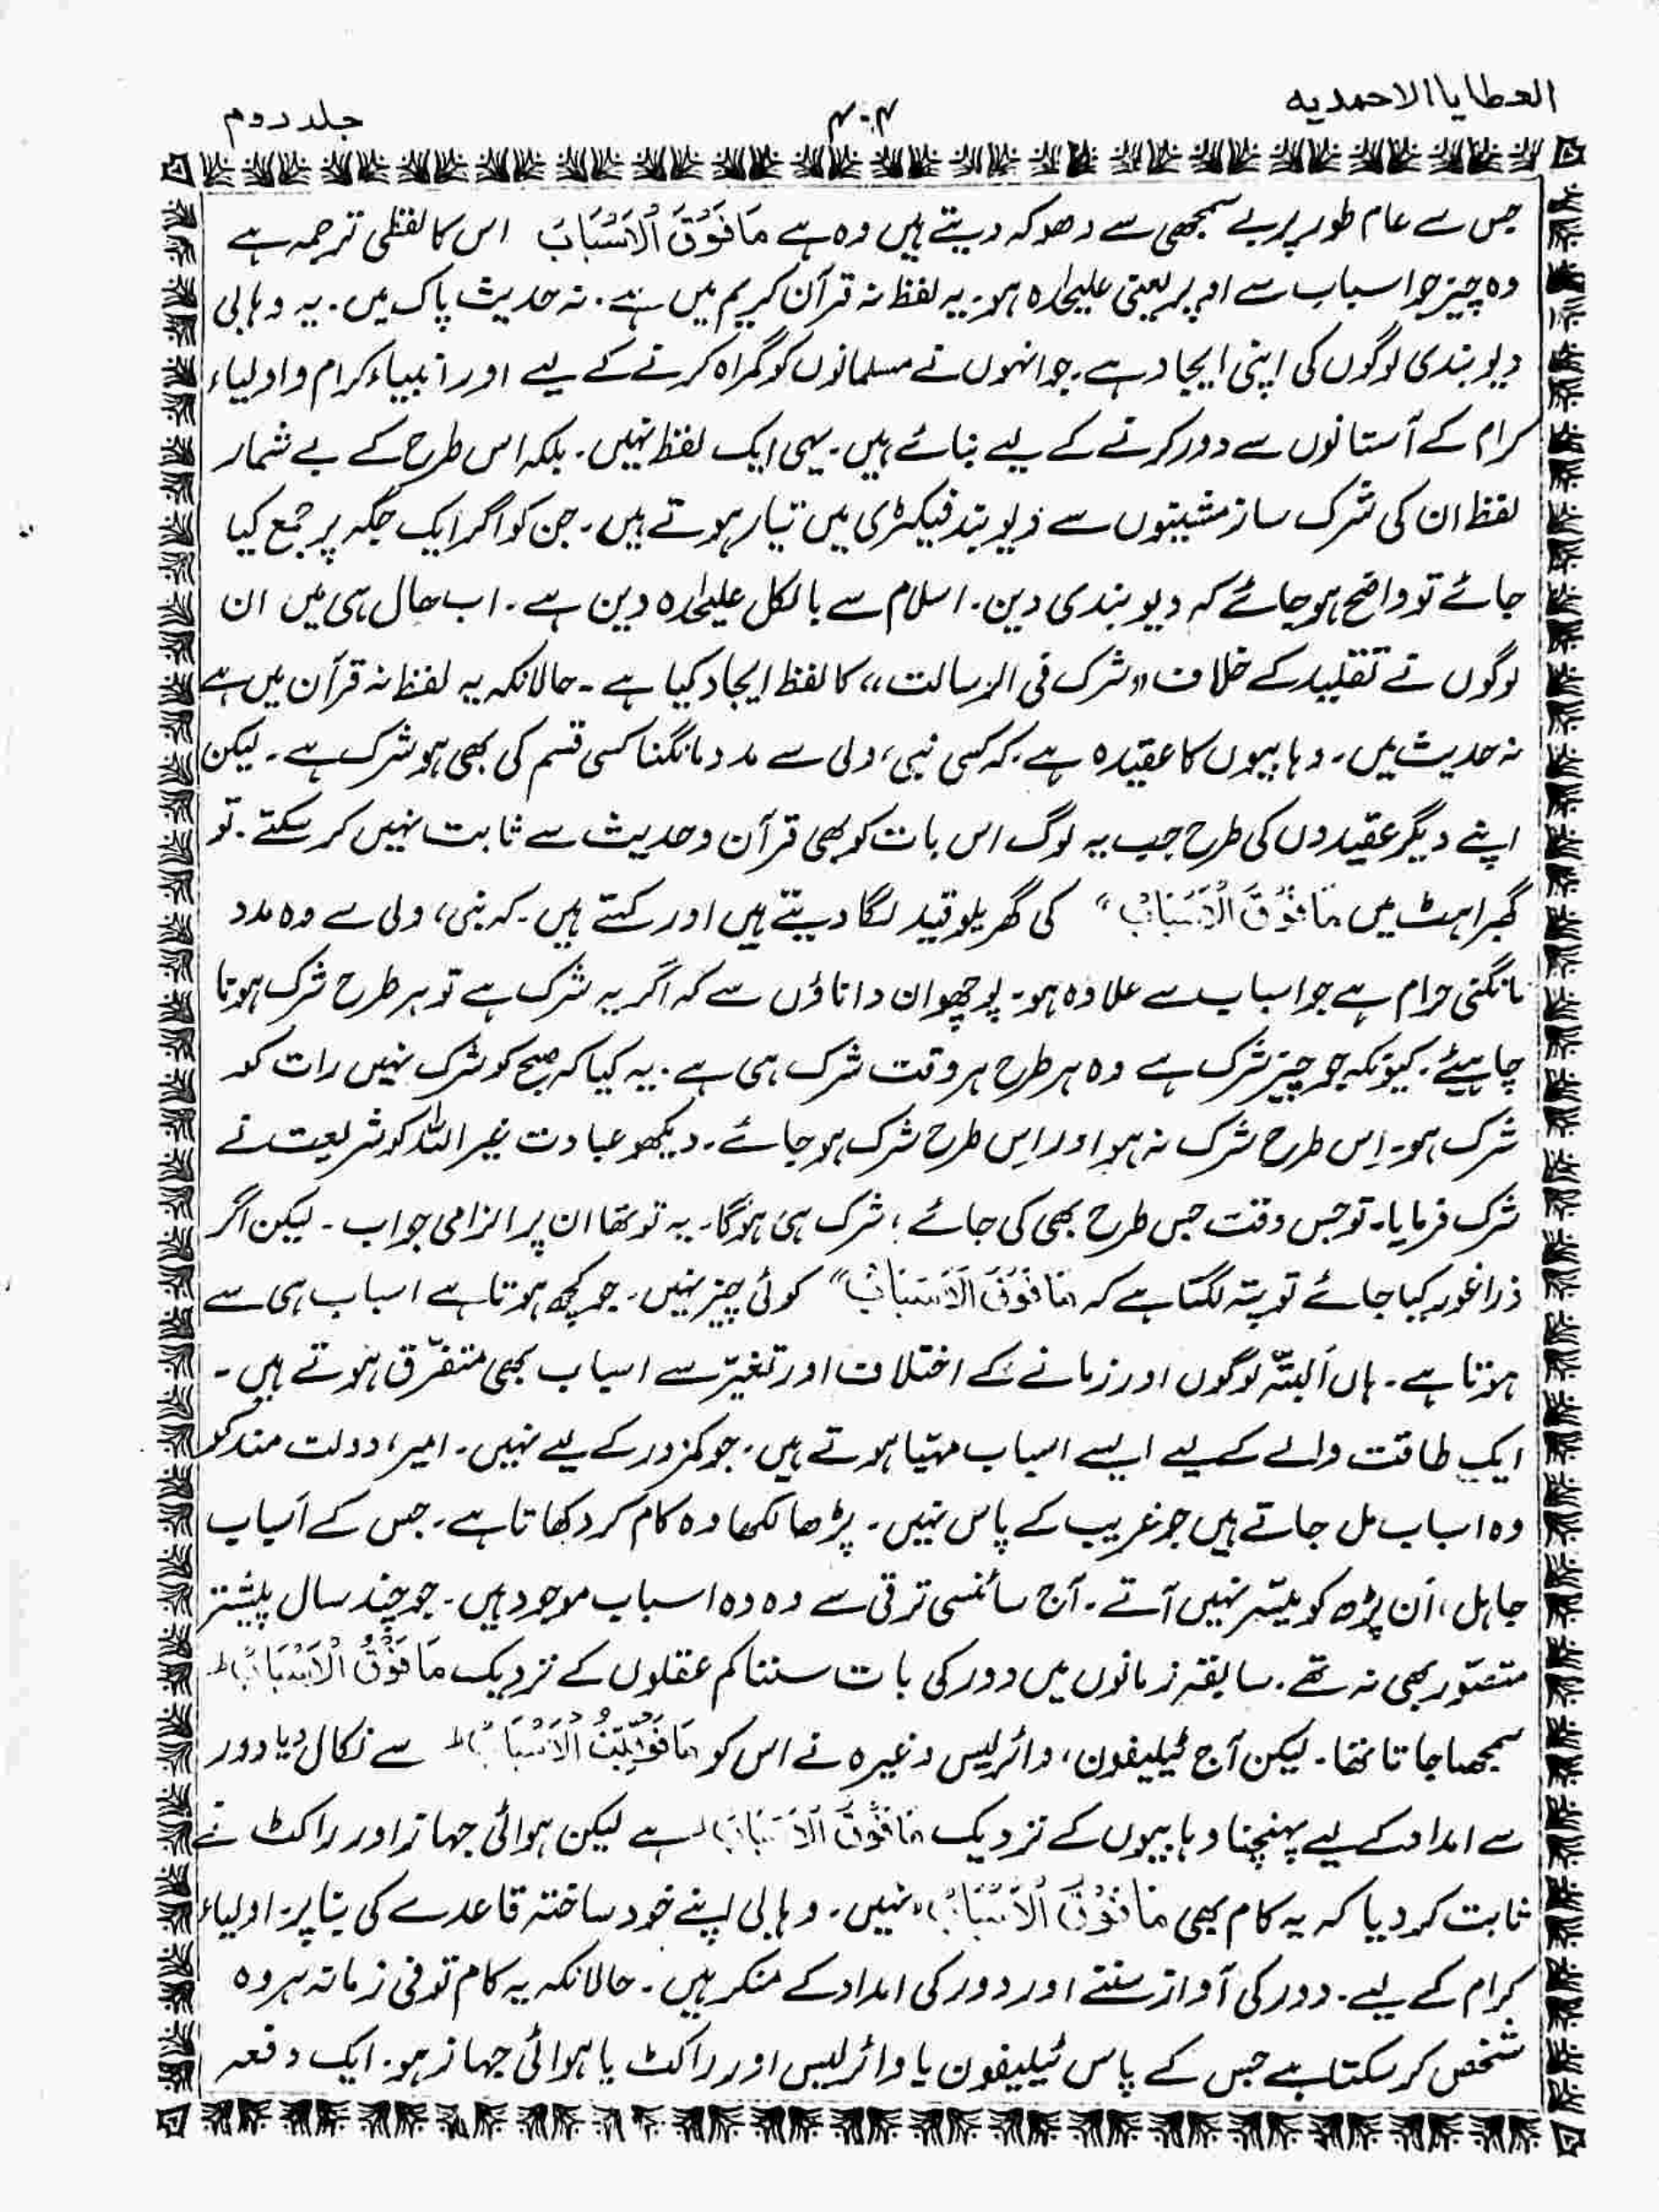 العطایا الاحمدیه
۴۰۴
جلد دوم
جس سے عام طور پر بے سمجھی سے دھوکہ دیتے ہیں وہ ہے مَافَوْقَ الْاَسْبَابْ اس کا لفظی ترجمہ ہے
وہ چیز جو اسباب سے اوپر یعنی علیحٰدہ ہو۔ یہ لفظ نہ قرآن کریم میں ہے۔ نہ حدیث پاک میں۔ یہ وہابی
دیوبندی لوگوں کی اپنی ایجاد ہے۔ جو انہوں نے مسلمانوں کو گمراہ کرنے کے لیے اور انبیاء کرام و اولیاء
کرام کے آستانوں سے دور کرنے کے لیے بنائے ہیں۔ یہی ایک لفظ نہیں۔ بلکہ اس طرح کے بے شمار
لفظ ان کی شرک ساز مشینوں سے دیوبند فیکٹری میں تیار ہوتے ہیں۔ جن کو اگر ایک جگہ پر جمع کیا
جائے تو واضح ہو جائے کہ دیوبندی دین۔ اسلام سے بالکل علیحٰدہ دین ہے۔ اب حال ہی میں ان
لوگوں نے تقلید کے خلاف ’’شرک فی الرسالت‘‘ کا لفظ ایجاد کیا ہے۔ حالانکہ یہ لفظ نہ قرآن میں ہے
نہ حدیث میں۔ وہابیوں کا عقیدہ ہے۔ کہ کسی نبی، ولی سے مدد مانگنا کسی قسم کی بھی ہو شرک ہے۔ لیکن
اپنے دیگر عقیدوں کی طرح جب یہ لوگ اس بات کو بھی قرآن و حدیث سے ثابت نہیں کر سکتے۔ تو
گھبراہٹ میں مَافَوْقَ الْاَسْبَابْ‘‘ کی گھریلو قید لگا دیتے ہیں اور کہتے ہیں۔ کہ نبی، ولی سے وہ مدد
مانگنی حرام ہے جو اسباب سے علاوہ ہو۔ پوچھو ان داناؤں سے کہ اگر یہ شرک ہے تو ہر طرح شرک ہونا
چاہیئے۔ کیونکہ جو چیز شرک ہے وہ ہر طرح ہر وقت شرک ہی ہے۔ یہ کیا کہ صبح کو شرک نہیں رات کو
شرک ہو۔ اِس طرح شرک نہ ہو اور اِس طرح شرک ہو جائے۔ دیکھو عبادت غیر اللہ کو شریعت نے
شرک فرمایا۔ تو جس وقت جس طرح بھی کی جائے؛ شرک ہی ہوگا۔ یہ تو تھا ان پر الزامی جواب۔ لیکن اگر
ذرا غور کیا جائے تو پتہ لگتا ہے کہ مَافَوْقَ الْاَسْبَابْ‘‘ کوئی چیز نہیں۔ جو کچھ ہوتا ہے اسباب ہی سے
ہوتا ہے۔ ہاں اَلبتّہ لوگوں اور زمانے کے اختلاف اور تغیّر سے اسباب بھی متفرّق ہوتے ہیں۔
ایک طاقت والے کے لیے ایسے اسباب مہیّا ہوتے ہیں۔ جو کمزور کے لیے نہیں۔ امیر، دولت مند کو
وہ اسباب مل جاتے ہیں جو غریب کے پاس نہیں۔ پڑھا لکھا وہ کام کر دکھاتا ہے۔ جس کے اَسباب
جاہل، اَن پڑھ کو میسّر نہیں آتے۔ آج سائنسی ترقی سے وہ وہ اسباب موجود ہیں۔ جو چند سال پیشتر
متصوّر بھی نہ تھے۔ سابقہ زمانوں میں دور کی بات سننا کم عقلوں کے نزدیک مَافَوْقُ الْاَسْبَابْ
سمجھا جاتا تھا۔ لیکن آج ٹیلیفون، وائرلیس وغیرہ نے اس کو مَافَوْقُ الْاَسْبَابْ سے نکال دیا دور
سے امداد کے لیے پہنچنا وہابیوں کے نزدیک مَافَوْقَ الْاَسْبَابْ ہے لیکن ہوائی جہاز اور راکٹ نے
ثابت کر دیا کہ یہ کام بھی مَافَوْقَ الْاَسْبَابْ، نہیں۔ وہابی اپنے خود ساختہ قاعدے کی بنا پر۔ اولیاء
کرام کے لیے۔ دور کی آواز سننے اور دور کی امداد کے منکر ہیں۔ حالانکہ یہ کام تو فی زمانہ ہر وہ
شخص کر سکتا ہے جس کے پاس ٹیلیفون یا وائرلیس اور راکٹ یا ہوائی جہاز ہو۔ ایک دفعہ